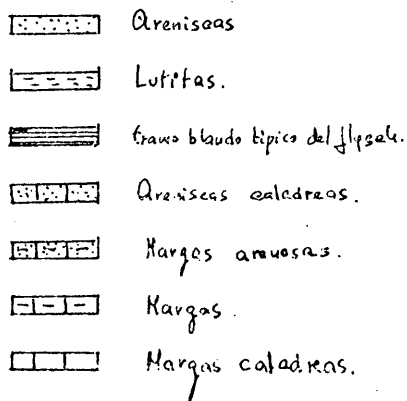 Areniscas
Lutitas.
tramo blando típico del flysch.
Areniscas calcáreas.
Margas arenosas.
Margas.
Margas calcáreas.